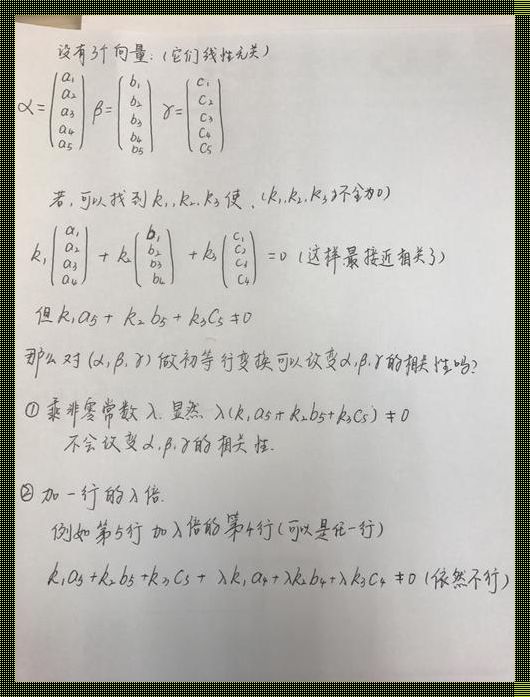 设有3个向量:(它们线性无关)
α=(a₁ a₂ a₃ a₄ a₅) β=(b₁ b₂ b₃ b₄ b₅) γ=(c₁ c₂ c₃ c₄ c₅)
若,可以找到k₁,k₂,k₃使,(k₁,k₂,k₃不全为0)
k₁(a₁ a₂ a₃ a₄) + k₂(b₁ b₂ b₃ b₄) + k₃(c₁ c₂ c₃ c₄) =0 (这样最接近相关了)
但k₁a₅+k₂b₅+k₃c₅≠0
那么对(α,β,γ)做初等行变换可以改变α,β,γ的相关性吗?
① 乘非零常数λ.显然λ(k₁a₅+k₂b₅+k₃c₅)≠0
不会改变α,β,γ的相关性.
② 加一行的λ倍.
例如第5行加λ倍的第4行(可以是任一行)
k₁a₅+k₂b₅+k₃c₅+λk₁a₄+λk₂b₄+λk₃c₄≠0(依然不行)